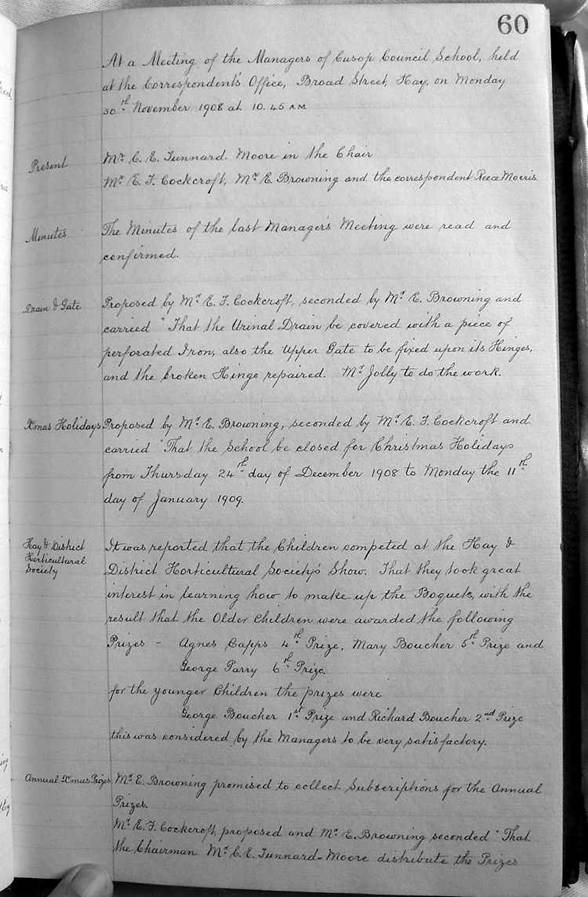 60
At a Meeting of the Managers of Cusop Council School, held
at the Correspondent's Office, Broad Street, Hay, on Monday
30th November 1908 at 10.45 AM
Present
Mr. C. E. Tunnard. Moore in the Chair
Mr. E. F. Cockcroft, Mr. E. Browning and the correspondent Rece Morris
Minutes
The Minutes of the last Managers Meeting were read and
confirmed.
Drain & Gate
Proposed by Mr. E. F. Cockcroft, seconded by Mr. E. Browning and
carried "That the Urinal Drain be covered with a piece of
perforated Iron, also the Upper Gate to be fixed upon its Hinges,
and the broken Hinge repaired. Mr. Jolly to do the work.
Xmas Holidays
Proposed by Mr. E. Browning, seconded by Mr. E. F. Cockcroft and
carried "That the School be closed for Christmas Holidays
from Thursday 24th day of December 1908 to Monday the 11th
day of January 1909.
Hay & District
Horticultural
Society
It was reported that the Children competed at the Hay &
District Horticultural Society's Show. That they took great
interest in learning how to make up the Boquets, with the
result that the Older Children were awarded the following
Prizes - Agnes Capps 4th Prize, Mary Boucher 5th Prize and
George Parry 6th Prize.
for the younger Children the prizes were
George Boucher 1st Prize and Richard Boucher 2nd Prize
this was considered by the Managers to be very satisfactory.
Annual Xmas Prizes
Mr. E. Browning promised to collect Subscriptions for the Annual
Prizes.
Mr. E. F. Cockcroft, proposed and Mr. E. Browning seconded "That
the Chairman Mr. C. E. Tunnard-Moore distribute the Prizes